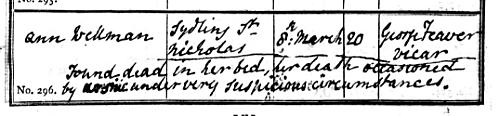 No. 295.
Ann Wellman Sydling St. Nicholas 8th March 20 George Feaver vicar
Found dead in her bed, her death occasioned
No. 296. by arsenic under very suspicious circumstances.